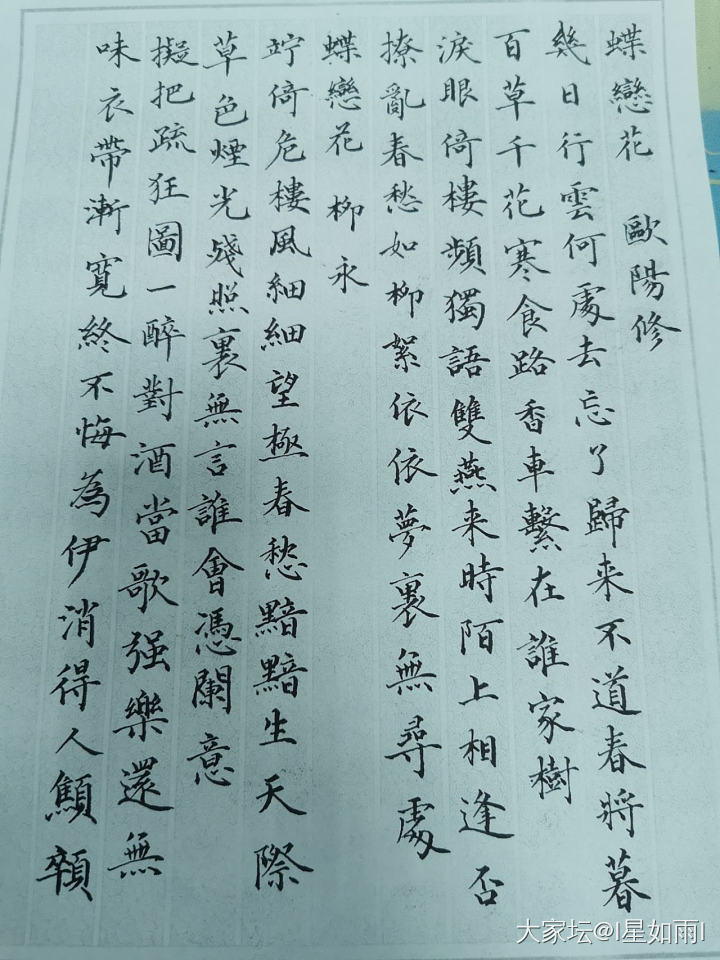 蝶戀花　歐陽修
幾日行雲何處去忘了歸来不道春將暮
百草千花寒食路香車繫在誰家樹
淚眼倚樓頻獨語雙燕来時陌上相逢否
撩亂春愁如柳絮依依夢裏無尋處
蝶戀花　柳永
竚倚危樓風細細望極春愁黯黯生天際
草色煙光殘照裏無言誰會憑闌意
擬把疏狂圖一醉對酒當歌强樂還無
味衣帶漸寬終不悔為伊消得人顦顇
大家坛@I星如雨I